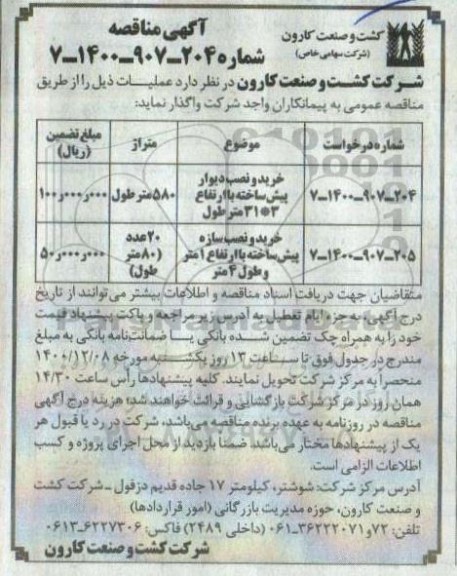 کشت و صنعت کارون
(شرکت سهامی خاص)
آگهی مناقصه
شماره ۲۰۴-۹۰۷-۱۴۰۰-۷
شرکت کشت و صنعت کارون در نظر دارد عملیات ذیل را از طریق
مناقصه عمومی به پیمانکاران واجد شرکت واگذار نماید:
شماره درخواست موضوع متراژ مبلغ تضمین (ریال)
۷-۱۴۰۰-۹۰۷-۲۰۴ خرید و نصب دیوار پیش ساخته با ارتفاع ۳*۳۱ متر طول ۵۸۰ متر طول ۱۰۰ر۰۰۰ر۰۰۰
۷-۱۴۰۰-۹۰۷-۲۰۵ خرید و نصب سازه پیش ساخته با ارتفاع ۱ متر و طول ۴ متر ۲۰ عدد (۸۰ متر طول) ۵۰ر۰۰۰ر۰۰۰
متقاضیان جهت دریافت اسناد مناقصه و اطلاعات بیشتر می‌توانند از تاریخ
درج آگهی، به جزء ایام تعطیل به آدرس زیر مراجعه و پاکت پیشنهاد قیمت
خود را به همراه چک تضمین شده بانکی یا ضمانت‌نامه بانکی به مبلغ
مندرج در جدول فوق تا ساعت ۱۳ روز یکشنبه مورخه ۱۴۰۰/۱۲/۰۸
منحصراً به مرکز شرکت تحویل نمایند. کلیه پیشنهادها رأس ساعت ۱۴/۳۰
همان روز در مرکز شرکت بازگشایی و قرائت خواهند شد، هزینه درج آگهی
مناقصه در روزنامه به عهده برنده مناقصه می‌باشد، شرکت در رد یا قبول هر
یک از پیشنهادها مختار می‌باشد. ضمناً بازدید از محل اجرای پروژه و کسب
اطلاعات الزامی است.
آدرس مرکز شرکت: شوشتر، کیلومتر ۱۷ جاده قدیم دزفول - شرکت کشت
و صنعت کارون، حوزه مدیریت بازرگانی (امور قراردادها)
تلفن: ۷۲ و ۳۶۲۲۲۰۷۱-۰۶۱ (داخلی ۲۴۸۹) فاکس: ۶۲۲۷۳۰۶-۰۶۱۳
شرکت کشت و صنعت کارون